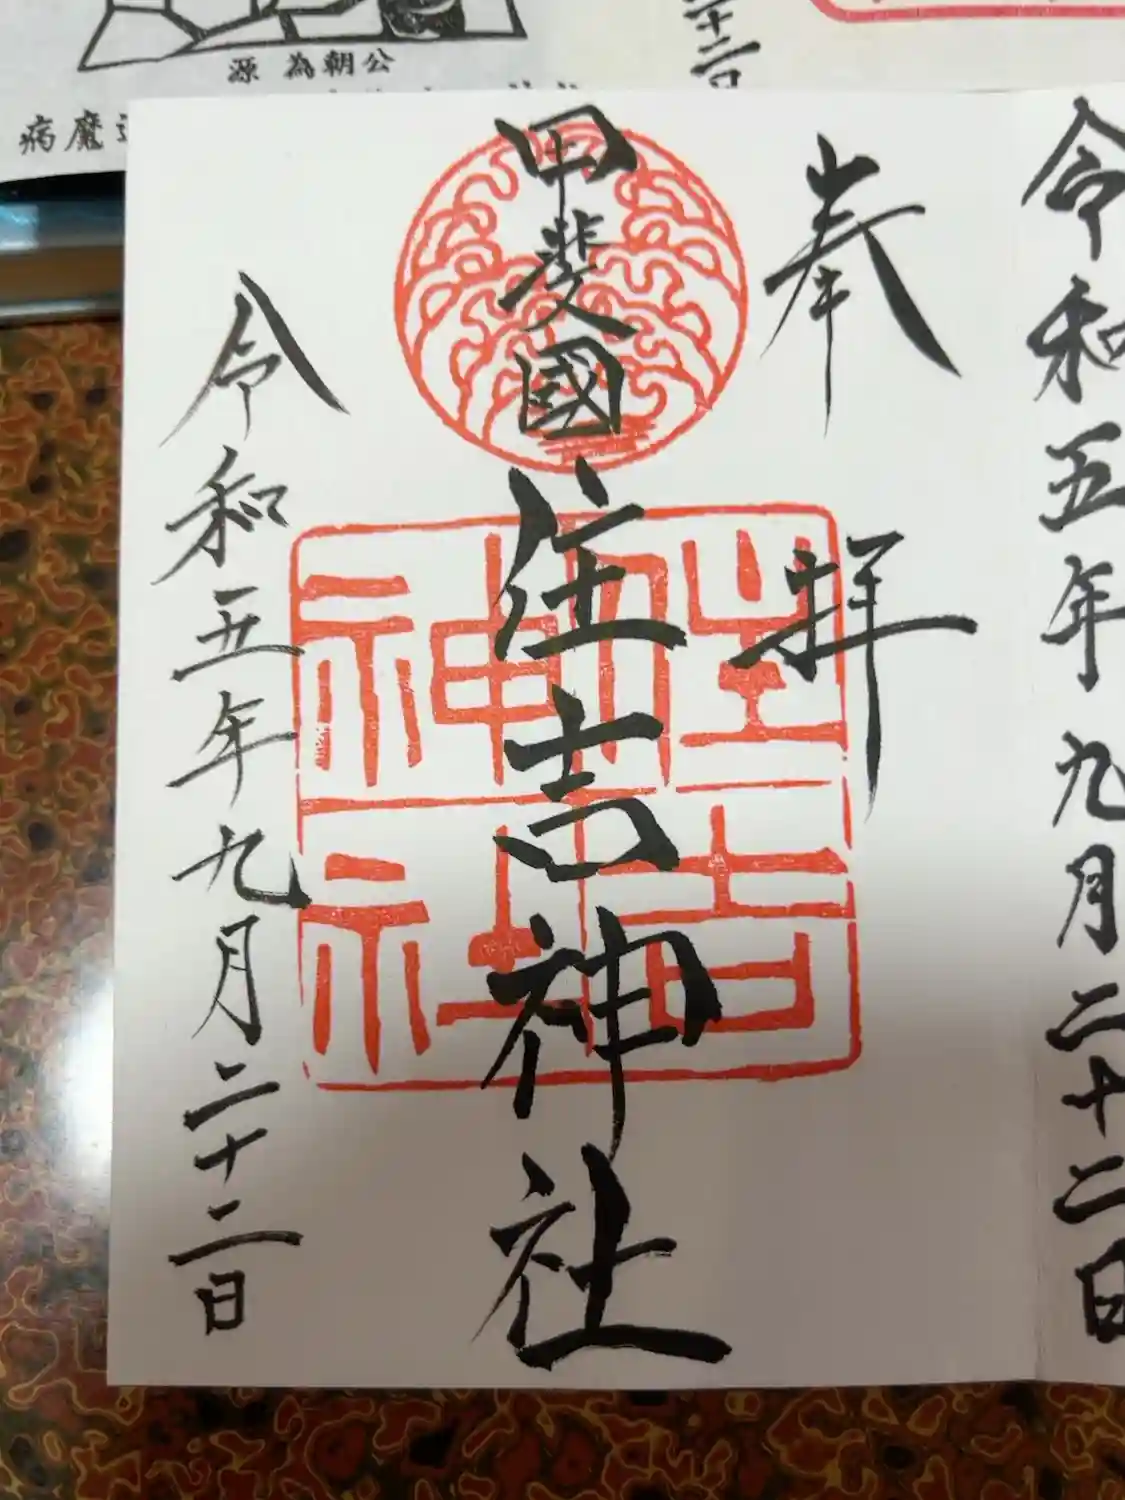 源為朝公
病魔
十二日
令和五年九月二十二日
奉拝
甲斐國
住吉神社
住吉神社
令和五年九月二十二日